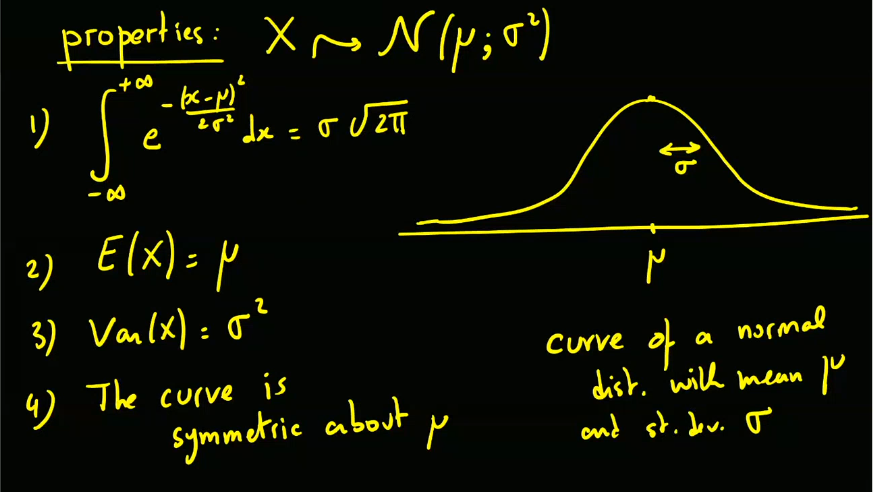 properties: X ⤳ N(μ; σ²)
1) ∫_{-∞}^{+∞} e^{-(x-μ)²/2σ²} dx = σ√2π
σ
μ
2) E(X) = μ
3) Var(X) = σ²
4) The curve is
symmetric about μ
curve of a normal
dist. with mean μ
and st. dev. σ